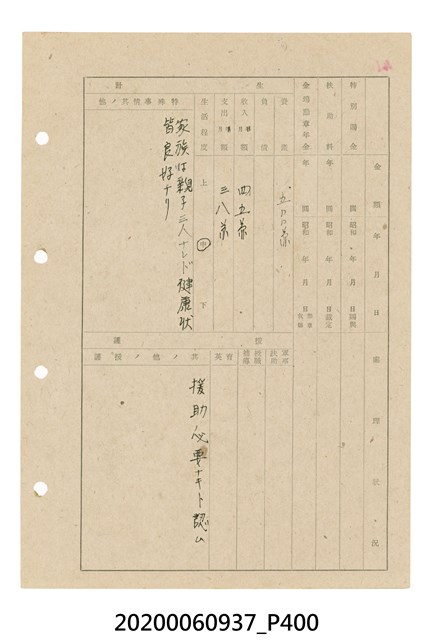 金額 年月日 処理状況
特別賜金 円 昭和 年 月 日 国債
扶助料 年 円 昭和 年 月 日
金鵄勲章年金 年 円 昭和 年 月 日
生計
資産 五〇〇円
負債
収入 月額 四五円
支出 月額 三八円
生活程度 上 中 下
特殊事項其ノ他
家族は親子三人ナレド健康状
皆良好ナリ
援護
軍事扶助
育英
其ノ他ノ援護
援助必要ナキト認ム
20200060937_P400